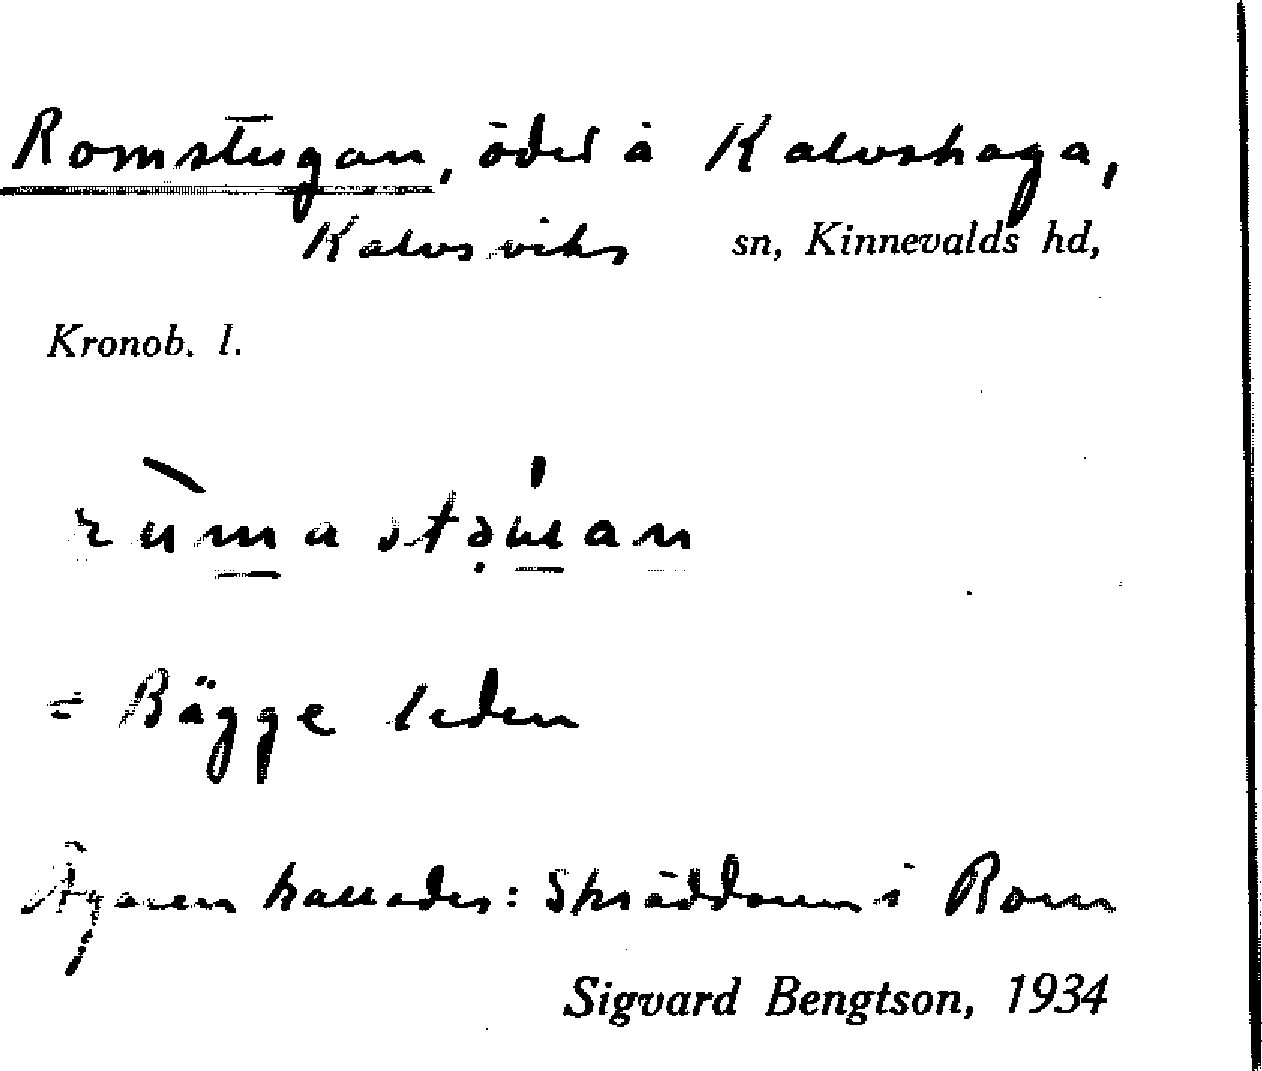 Romstugan, ödel å Kalvshaga,
Kalvsviks sn, Kinnevalds hd,
Kronob. l.
= Bägge leden
Ägaren kallades: Skräddaren i Rom
Sigvard Bengtson, 1934